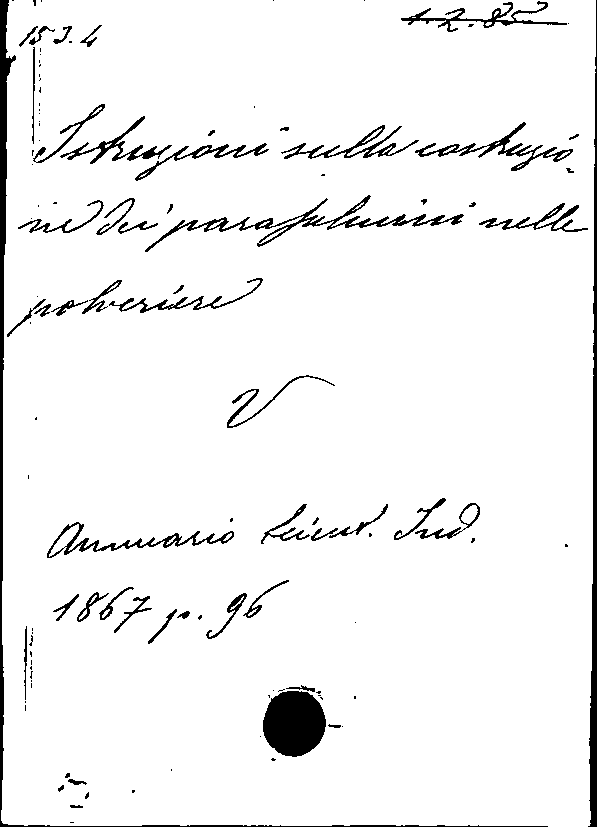 153.4
1.2.85
Istruzioni sulla costruzio-
ne dei parafulmini nelle
polveriere
V
Annuario Scient. Ind.
1867 p. 96